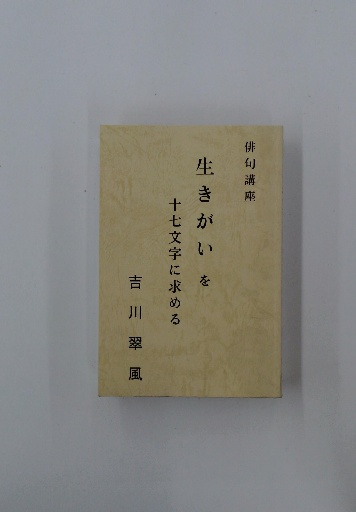 俳句講座
生きがいを
十七文字に求める
吉川翠風